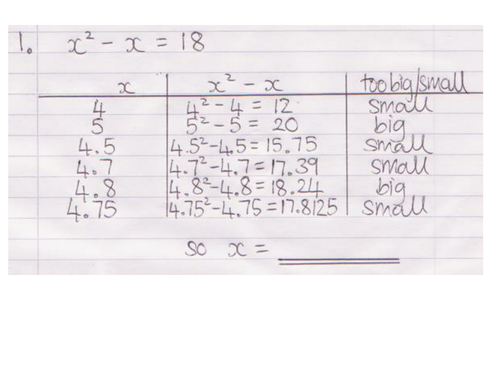 1. x² - x = 18
x x² - x too big/small
4 4² - 4 = 12 small
5 5² - 5 = 20 big
4.5 4.5² - 4.5 = 15.75 small
4.7 4.7² - 4.7 = 17.39 small
4.8 4.8² - 4.8 = 18.24 big
4.75 4.75² - 4.75 = 17.8125 small
so x =